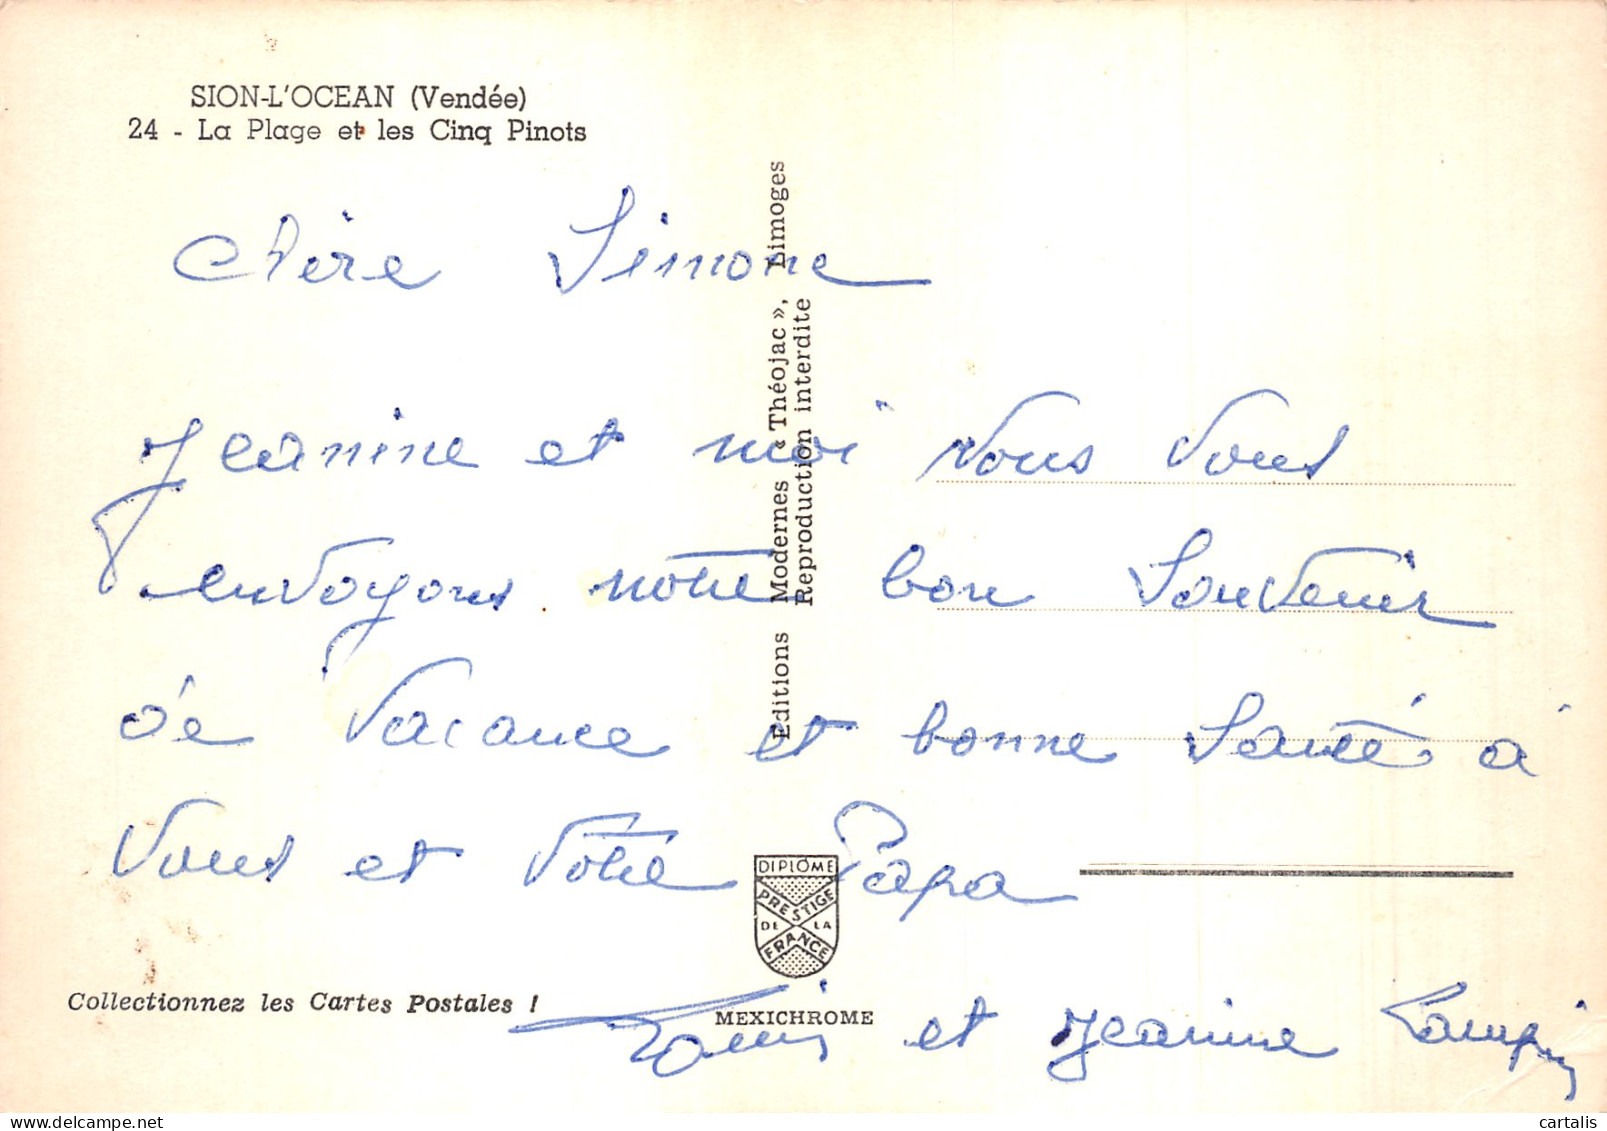 SION-L'OCEAN (Vendée)
24 - La Plage et les Cinq Pinots
Chère Simone
Jeanine et moi Nous Vous
envoyons notre bon Souvenir
de Vacance et bonne Santé à
Vous et Votre Papa
et Jeanine
Editions Modernes « Théojac », Limoges
Reproduction interdite
DIPLOME
PRESTIGE
DE LA
FRANCE
MEXICHROME
Collectionnez les Cartes Postales !
cartalis
delcampe.net